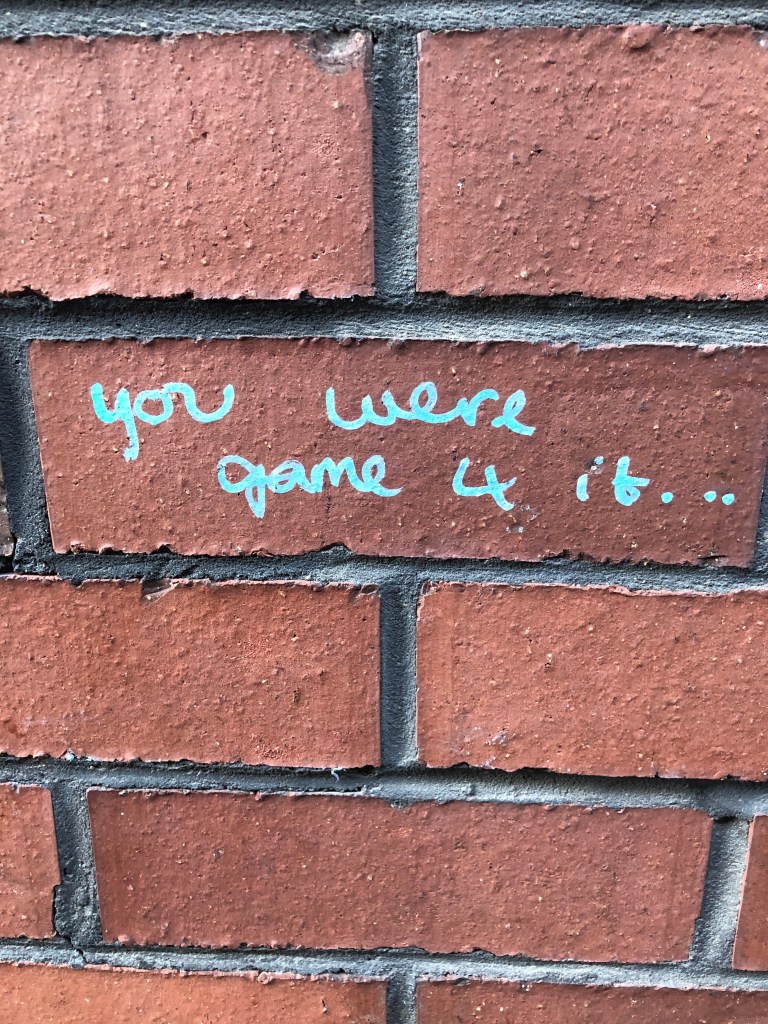 you were
game 4 it...